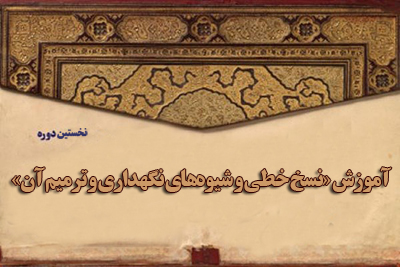 نخستین دوره
آموزش «نسخ خطی و شیوه‌های نگهداری و ترمیم آن»